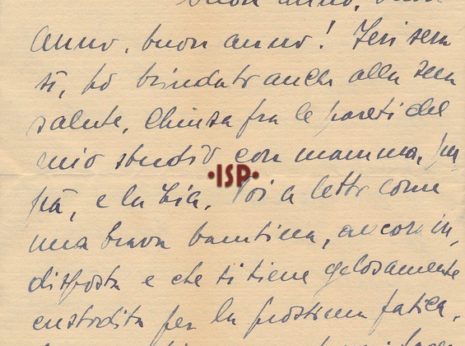 buon anno, buon
anno, buon anno! Ieri sera
sì, ho brindato anche alla sua
salute, chiusa fra le pareti del
mio studio con mamma, pa
·ISP·
pà, e la zia. Poi a letto come
una brava bambina, ancora in
disposta e che si tiene gelosamente
custodita per la prossima fatica.